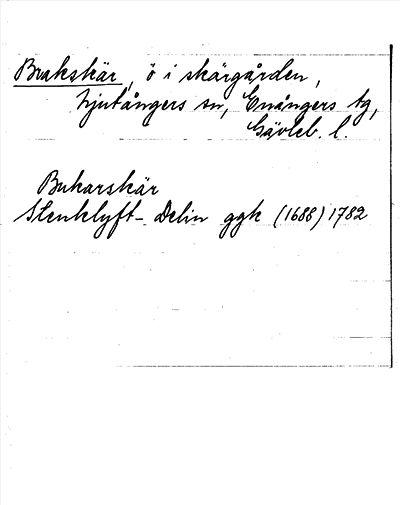 Brakskär, ö i skärgården,
Njutångers sn, Enångers tg,
Gävleb. l.
Bukarskär
Stenklyft- Delin ggk (1688) 1782